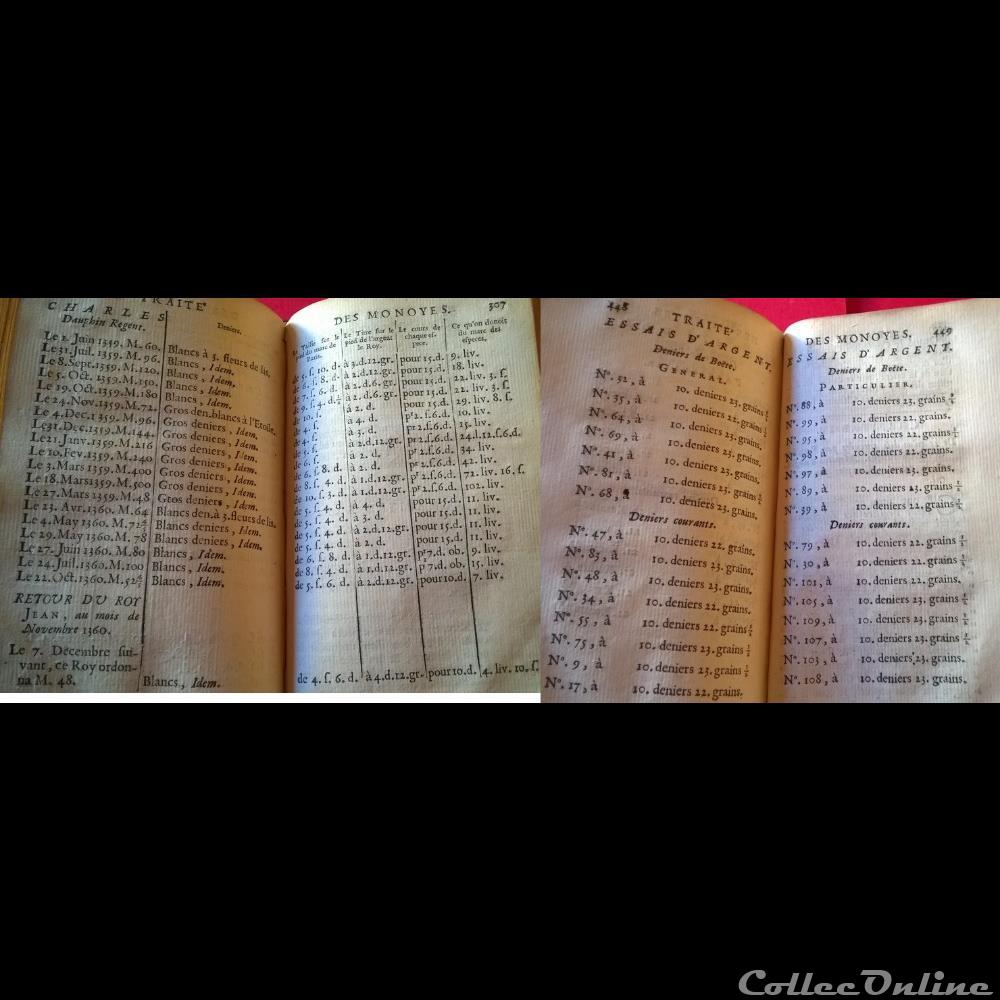 TRAITE'
CHARLES
Dauphin Regent.
Deniers.
Le 2. Juin 1359. M. 60.
Le 31. Juil. 1359. M. 96. Blancs à 3. fleurs de lis.
Le 8. Sept. 1359. M. 120. Blancs, Idem.
Le 5. Oct. 1359. M. 150. Blancs, Idem.
Le 19. Oct. 1359. M. 180 Blancs, Idem.
Le 24. Nov. 1359. M. 72. Gros den. blancs à l'Etoile.
Le 4. Dec. 1359. M. 96. Gros deniers, Idem.
Le 31. Dec. 1359. M. 144. Gros deniers, Idem.
Le 21. Janv. 1359. M. 216 Gros deniers, Idem.
Le 10. Fev. 1359. M. 240 Gros deniers, Idem.
Le 3. Mars 1359. M. 400 Gros deniers, Idem.
Le 18. Mars 1359. M. 500 Gros deniers, Idem.
Le 27. Mars 1359. M. 48 Gros deniers, Idem.
Le 23. Avr. 1360. M. 64 Blancs den. à 3. fleurs de lis.
Le 4. May 1360. M. 72 Blancs deniers, Idem.
Le 29. May 1360. M. 78 Blancs deniers, Idem.
Le 27. Juin 1360. M. 80 Blancs, Idem.
Le 24. Juil. 1360. M. 100 Blancs, Idem.
Le 22. Oct. 1360. M. 52 Blancs, Idem.
RETOUR DU ROY
JEAN, au mois de
Novembre 1360.
Le 7. Decembre sui-
vant, ce Roy ordon-
na M. 48. Blancs, Idem.
DES MONOYES. 307
Taille sur le pied du marc de Paris.
Le Titre sur le pied de l'argent le Roy.
Le cours de chaque es-pece.
Ce qu'on donoit du marc des especes.
à 3. d. 12. gr. pour 15. d. 9. liv.
pour 15. d. 18. liv.
pour 15. d. 22. liv. 3. s.
pour 15. d. 29. liv. 8. s.
à 4. d. pr 2. s. 6. d. 10. liv.
à 3. d. pr 2. s. 6. d. 15. liv.
à 2. d. 12. gr. pr 2. s. 6. d. 34. liv.
à 2. d. pr 2. s. 6. d. 42. liv.
à 1. d. 12. gr. pr 2. s. 6. d. 72. liv. 16. s.
de 10. s. 3. d. à 1. d. 12. gr. pr 2. s. 6. d. 102. liv.
de 5. s. 4. d. à 4. d. pour 15. d. 11. liv.
de 5. s. 4. d. à 3. d. pour 15. d. 11. liv.
à 2. d. 12. gr. pour 15. d. 11. liv.
de 5. s. 4. d. à 2. d. pour 15. d. 11. liv.
de 6. s. 8. d. à 1. d. 12. gr. pr 7. d. ob. 9. liv.
de 8. s. 4. d. à 1. d. 12. gr. pr 7. d. ob. 15. liv.
de 5. s. 6. d. à 2. d. 12. gr. pour 10. d. 7. liv.
de 4. s. 6. d. à 4. d. 12. gr. pour 10. d. 4. liv. 10. s.
448 TRAITE'
ESSAIS D'ARGENT.
Deniers de Boëte.
GENERAL.
N°. 32, à 10. deniers 23. grains ½
N°. 35, à 10. deniers 23. grains.
N°. 64, à 10. deniers 22. grains ½
N°. 69, à 10. deniers 23. grains.
N°. 41, à 10. deniers 22. grains.
N°. 81, à 10. deniers 23. grains ½
N°. 68, à 10. deniers 23. grains.
Deniers courants.
N°. 47, à 10. deniers 22. grains.
N°. 83, à 10. deniers 22. grains.
N°. 48, à 10. deniers 23. grains.
N°. 34, à 10. deniers 22. grains.
N°. 55, à 10. deniers 22. grains ½
N°. 75, à 10. deniers 23. grains ½
N°. 9, à 10. deniers 23. grains ½
N°. 17, à 10. deniers 22. grains.
DES MONOYES, 449
ESSAIS D'ARGENT.
Deniers de Boëte.
PARTICULIER.
N°. 88, à 10. deniers 23. grains ½
N°. 99, à 10. deniers 23. grains.
N°. 95, à 10. deniers 22. grains ½
N°. 98, à 10. deniers 22. grains ½
N°. 97, à 10. deniers 23. grains.
N°. 89, à 10. deniers 23. grains ½
N°. 39, à 10. deniers 22. grains ½
Deniers courants.
N°. 79, à 10. deniers 22. grains ½
N°. 30, à 10. deniers 22. grains ½
N°. 101, à 10. deniers 23. grains.
N°. 105, à 10. deniers 23. grains ½
N°. 109, à 10. deniers 23. grains ½
N°. 107, à 10. deniers 23. grains ½
N°. 103, à 10. deniers 23. grains.
N°. 108, à 10. deniers 23. grains.
CollecOnline